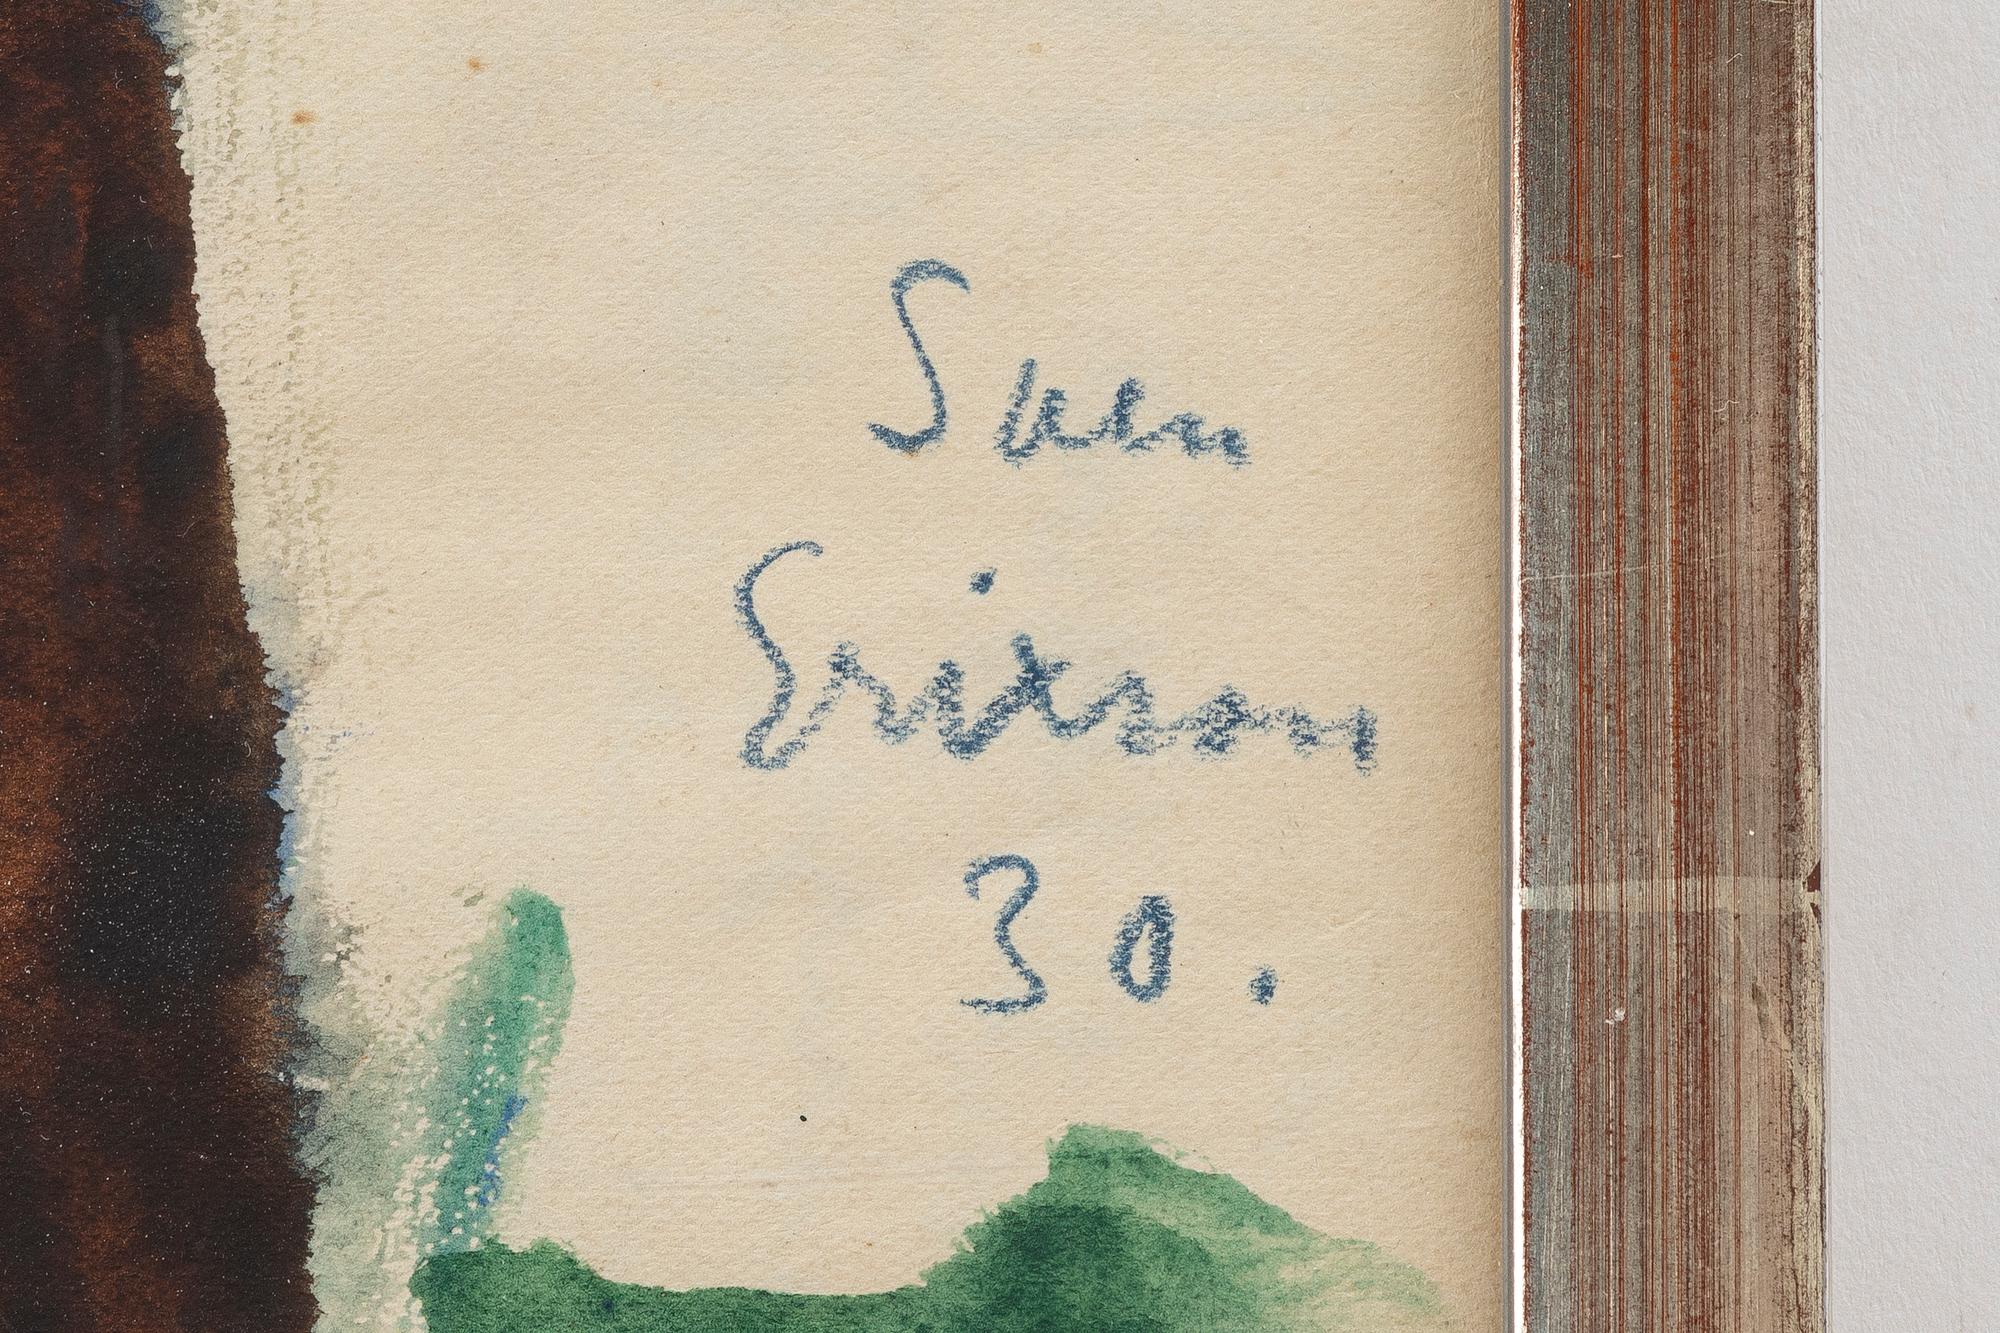 Sven
Erixson
30.